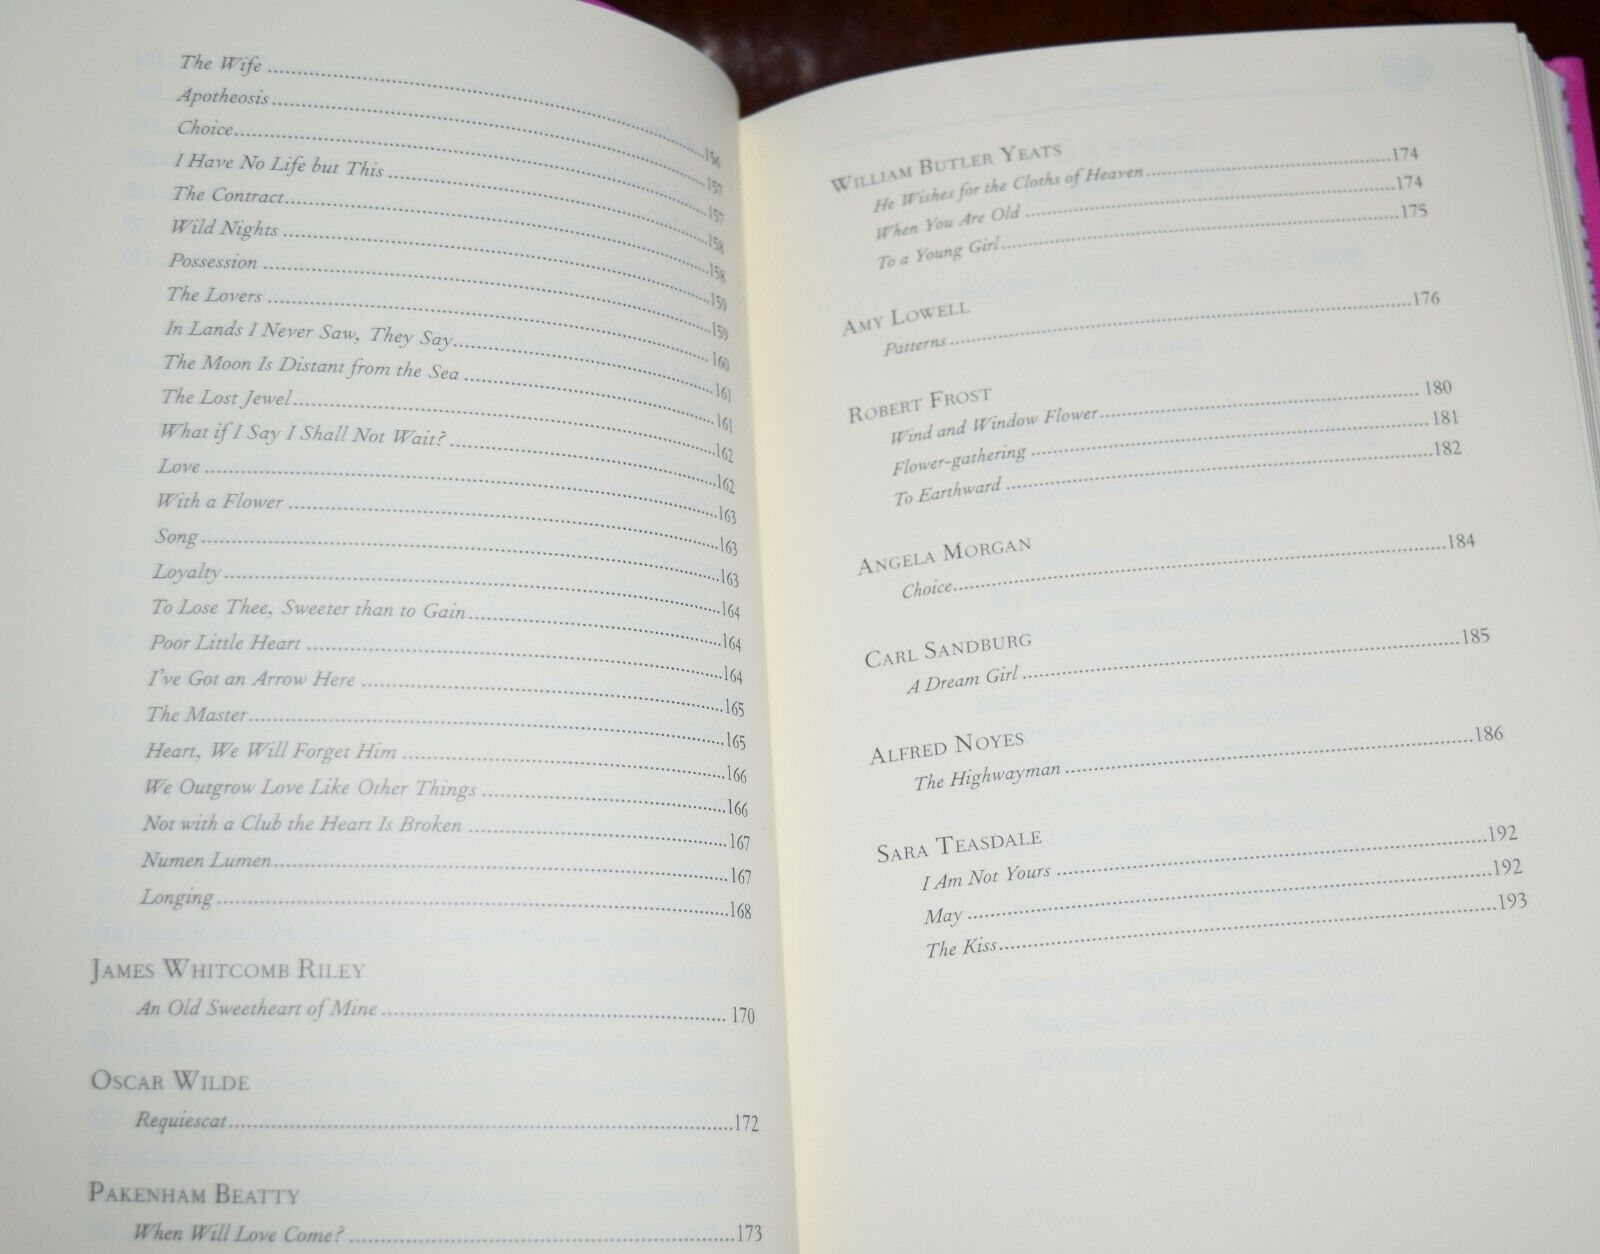 The Wife ........ 156
Apotheosis ........ 157
Choice ........ 157
I Have No Life but This ........ 158
The Contract ........ 158
Wild Nights ........ 159
Possession ........ 159
The Lovers ........ 160
In Lands I Never Saw, They Say ........ 161
The Moon Is Distant from the Sea ........ 161
The Lost Jewel ........ 162
What if I Say I Shall Not Wait? ........ 162
Love ........ 163
With a Flower ........ 163
Song ........ 163
Loyalty ........ 164
To Lose Thee, Sweeter than to Gain ........ 164
Poor Little Heart ........ 164
I've Got an Arrow Here ........ 165
The Master ........ 165
Heart, We Will Forget Him ........ 166
We Outgrow Love Like Other Things ........ 166
Not with a Club the Heart Is Broken ........ 167
Numen Lumen ........ 167
Longing ........ 168
JAMES WHITCOMB RILEY
An Old Sweetheart of Mine ........ 170
OSCAR WILDE
Requiescat ........ 172
PAKENHAM BEATTY
When Will Love Come? ........ 173
WILLIAM BUTLER YEATS
He Wishes for the Cloths of Heaven ........ 174
When You Are Old ........ 174
To a Young Girl ........ 175
AMY LOWELL
Patterns ........ 176
ROBERT FROST
Wind and Window Flower ........ 180
Flower-gathering ........ 181
To Earthward ........ 182
ANGELA MORGAN
Choice ........ 184
CARL SANDBURG
A Dream Girl ........ 185
ALFRED NOYES
The Highwayman ........ 186
SARA TEASDALE
I Am Not Yours ........ 192
May ........ 192
The Kiss ........ 193